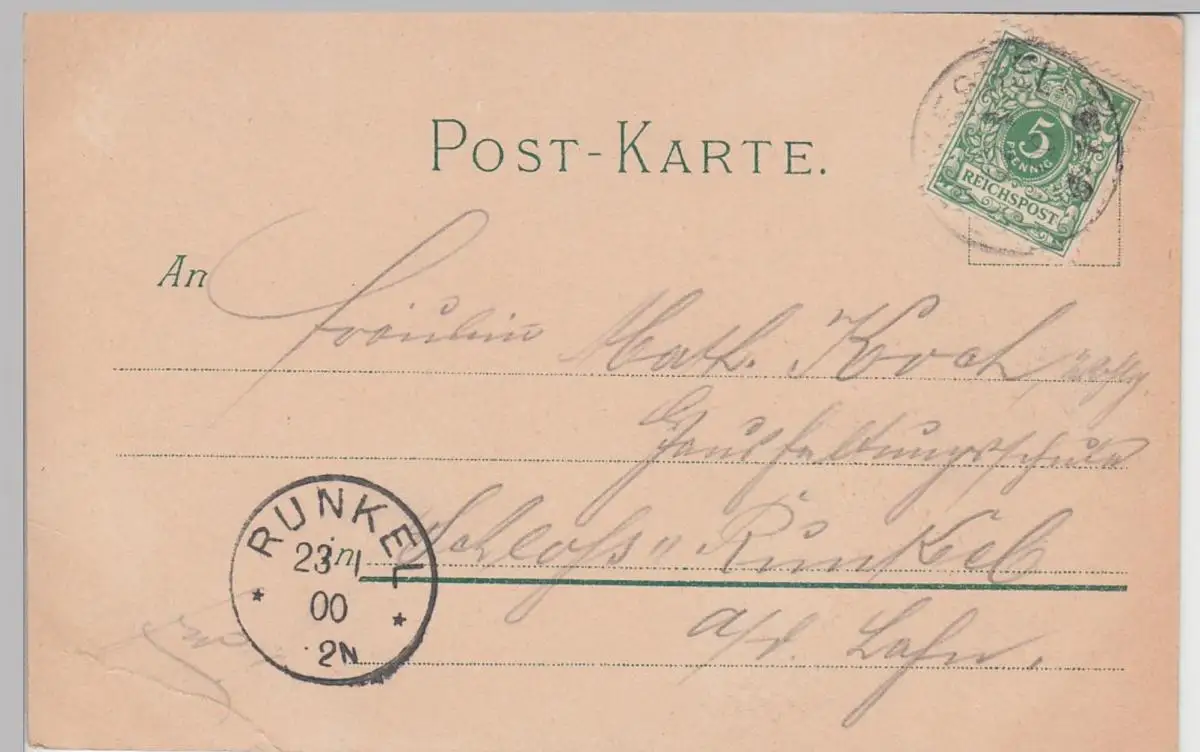 POST-KARTE.
5
PFENNIG
REICHSPOST
An Fräulein Math. Koch
Haushaltungsschule
in "Schloss" Runkel
a/d. Lahn.
RUNKEL
23 1
00
2N